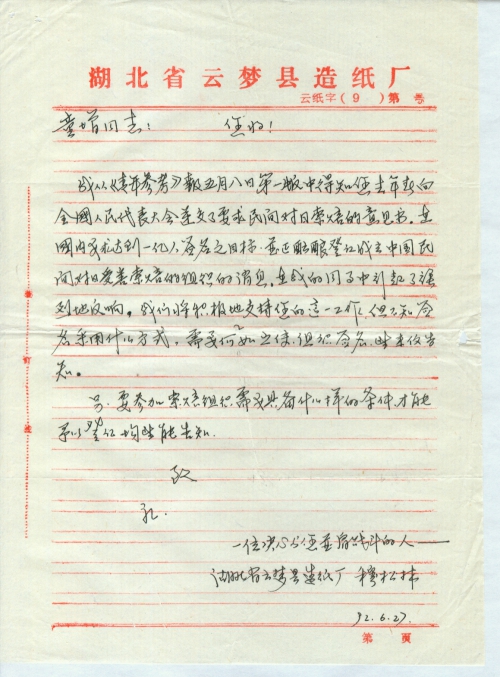 湖北省云梦县造纸厂
云纸字(9 )第 号
童增同志: 您好!
我从《青年参考》报五月八日第一版中得知您去年起向
全國人民代表大会递交了要求民间对日索赔的意见书,在
國内寻求达到一亿人签名之目标,并正
民
间对日受害索赔的组织的消息,在我的同事中引起了强
烈地反响。我们将积极地支持您的这一工作,但不知签
名采用什么方式,需要何如
组织签名,
告
知。
另,要参加索赔组织需要具备什么样的条件,才能
予以登记均
能告知
致
礼.
一位决心与您并肩战斗的人——
湖北省云梦县造纸厂
92.6.27.
第 页
装订线